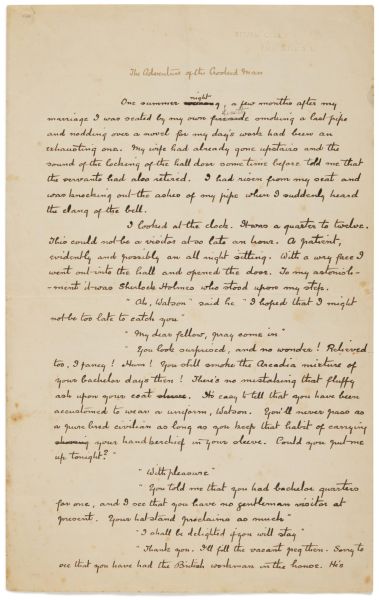 The Adventure of the Crooked Man
One summer night, a few months after my
marriage I was seated by my own smoking a last pipe
and nodding over a novel for my day's work had been an
exhausting one. My wife had already gone upstairs and the
sound of the locking of the hall door some time before told me that
the servants had also retired. I had risen from my seat and
was knocking out the ashes of my pipe when I suddenly heard
the clang of the bell.
I looked at the clock. It was a quarter to twelve.
This could not be a visitor at so late an hour. A patient,
evidently and possibly an all night sitting. With a wry face I
went out into the hall and opened the door. To my astonish-
-ment it was Sherlock Holmes who stood upon my step.
"Ah, Watson" said he "I hoped that I might
not be too late to catch you"
"My dear fellow, pray come in"
"You look surprised, and no wonder! Relieved
too, I fancy! Hum! You still smoke the Arcadia mixture of
your bachelor days then! There's no mistaking that fluffy
ash upon your coat. It's easy to tell that you have been
accustomed to wear a uniform, Watson. You'll never pass as
a pure bred civilian as long as you keep that habit of carrying
your handkerchief in your sleeve. Could you put me
up tonight?"
"With pleasure"
"You told me that you had bachelor quarters
for one, and I see that you have no gentleman visitor at
present. Your hat stand proclaims as much"
"I shall be delighted if you will stay"
"Thank you. I'll fill the vacant peg then. Sorry to
see that you have had the British workman in the house. He's